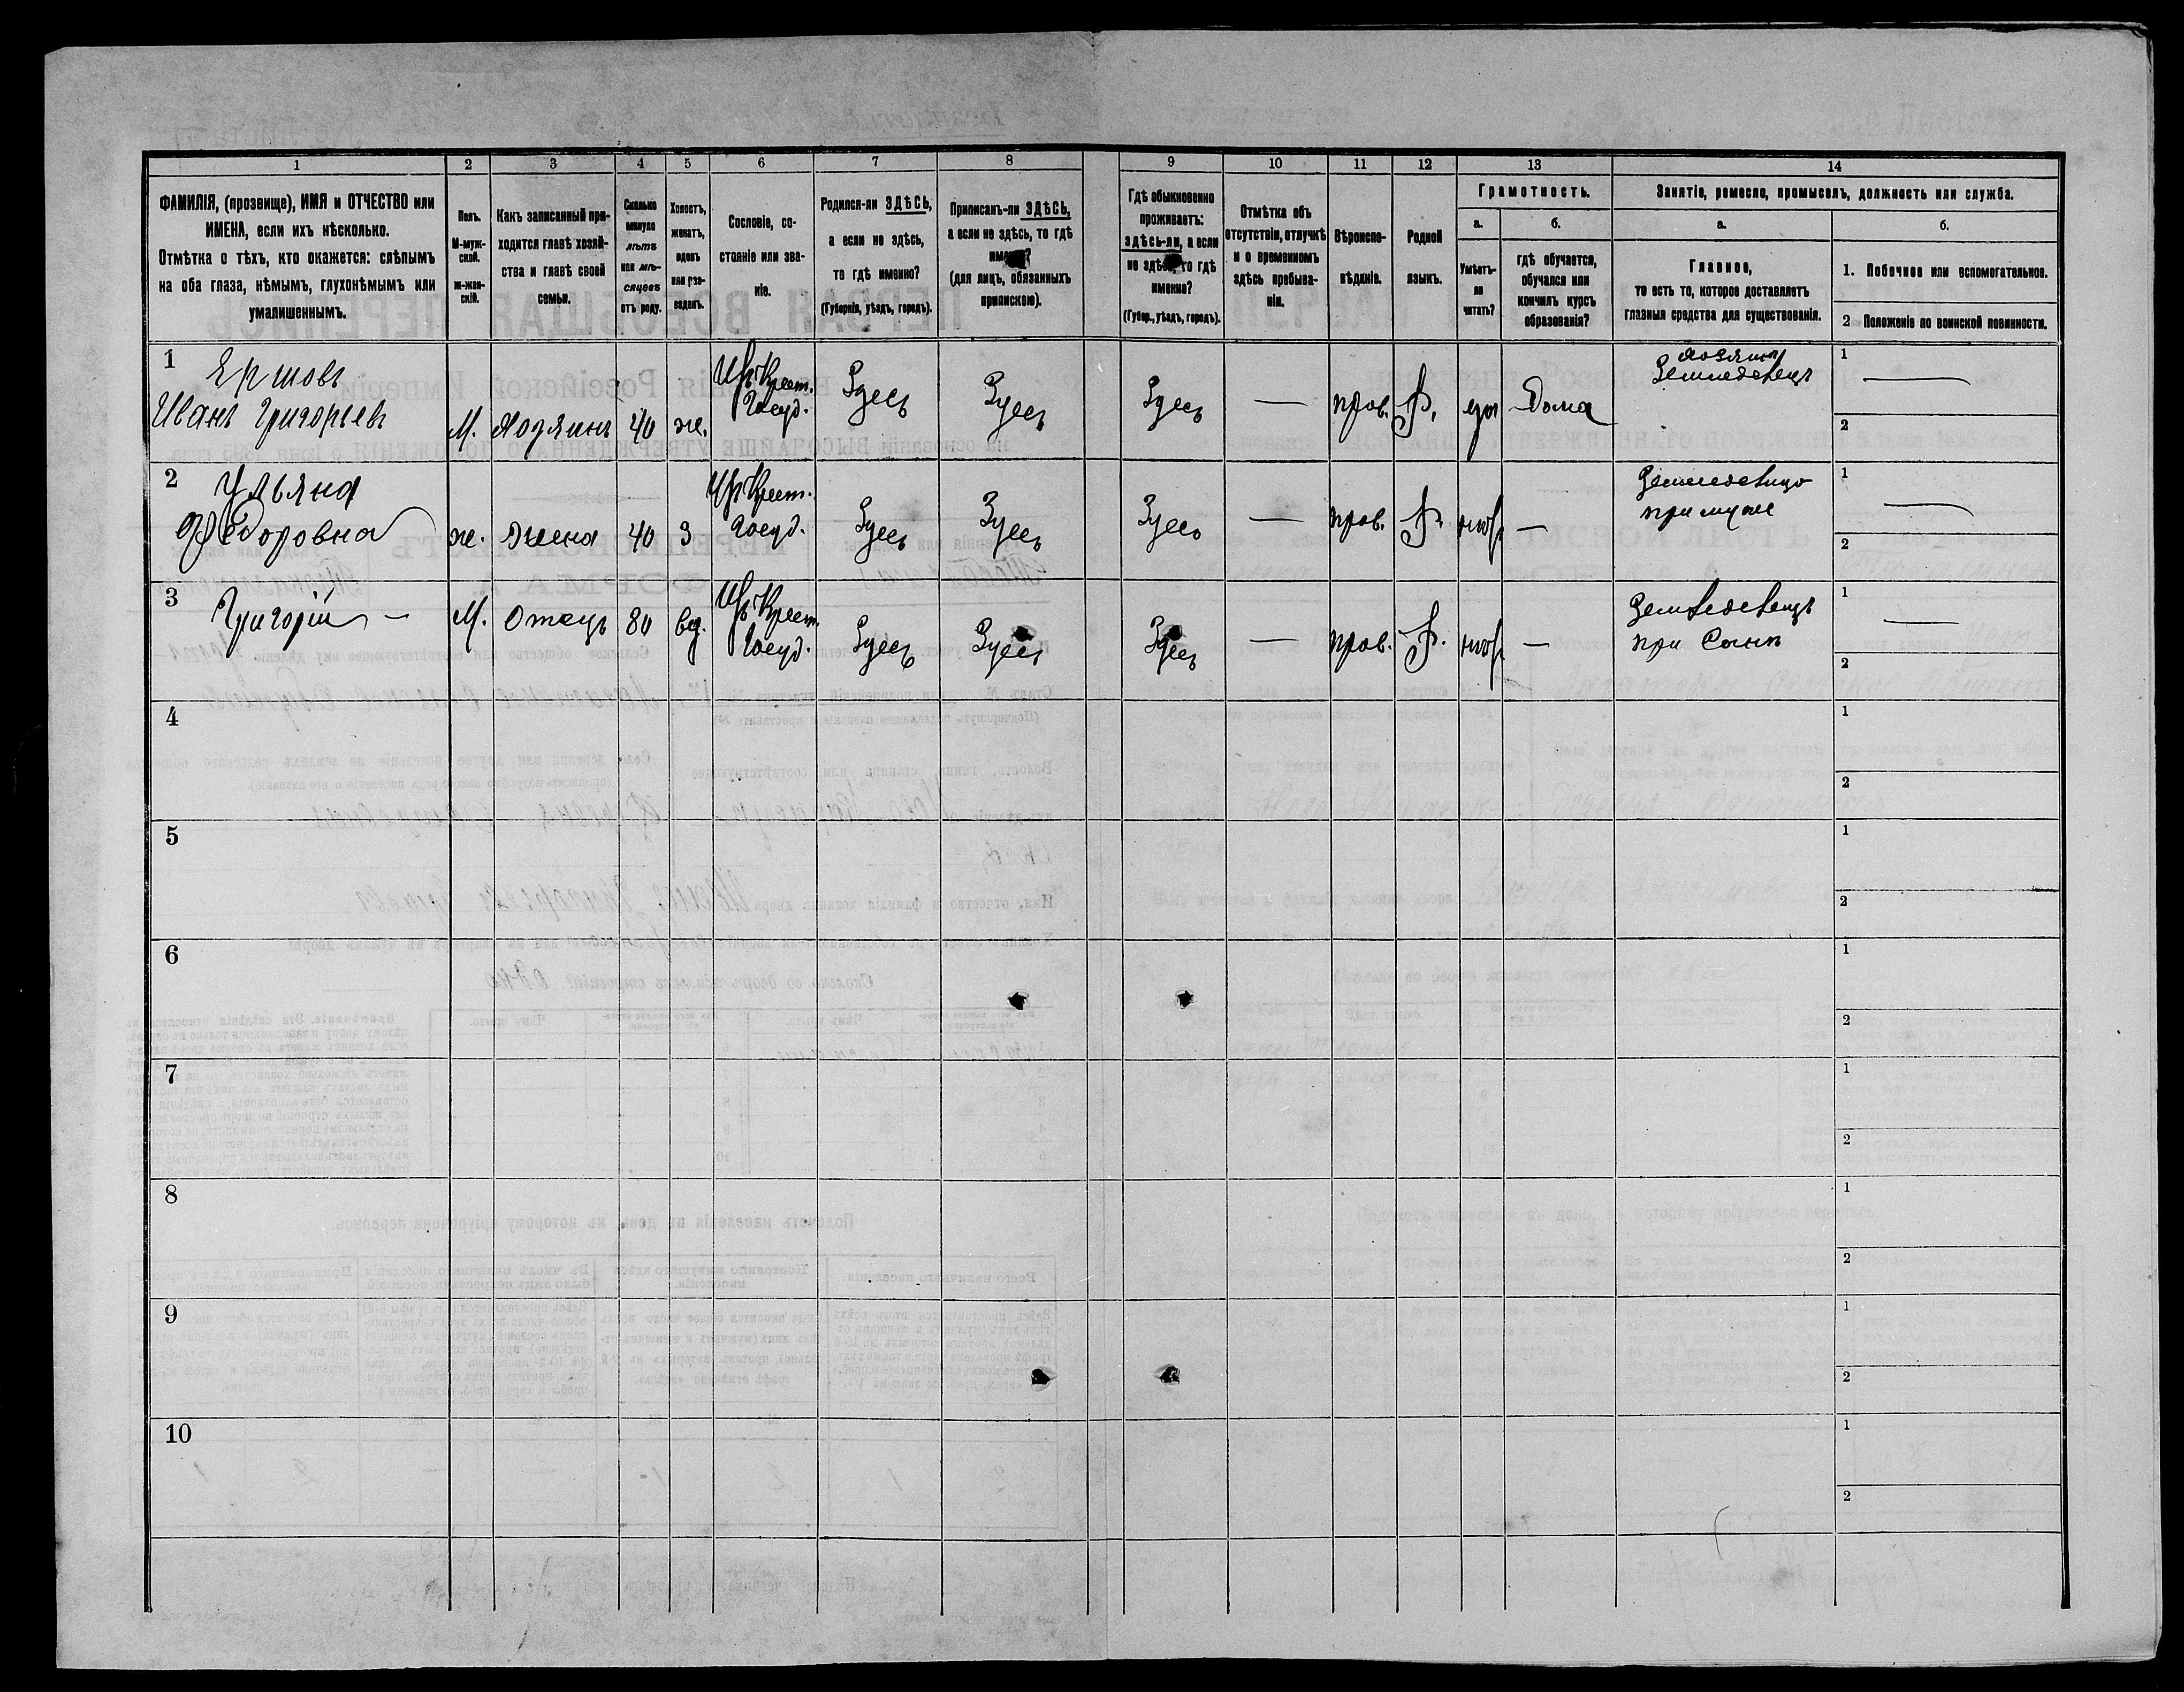 1 2 3 4 5 6 7 8 9 10 11 12 13 14
ФАМИЛІЯ, (прозвище), ИМЯ и ОТЧЕСТВО или
ИМЕНА, если ихъ нѣсколько.
Отмѣтка о тѣхъ, кто окажется: слѣпымъ
на оба глаза, нѣмымъ, глухонѣмымъ или
умалишеннымъ.
Полъ.
М-муж-
ской.
ж-жен-
скій.
Какъ записанный при-
ходится главѣ хозяй-
ства и главѣ своей
семьи.
Сколько
минуло
лѣтъ
или мѣ-
сяцевъ
отъ роду.
Холостъ,
женатъ,
вдовъ
или раз-
веденъ.
Сословіе, со-
стояніе или зва-
ніе.
Родился-ли ЗДѢСЬ,
а если не здѣсь,
то гдѣ именно?
(Губернія, уѣздъ, городъ).
Приписанъ-ли ЗДѢСЬ,
а если не здѣсь, то гдѣ
именно?
(для лицъ, обязанныхъ
припискою).
Гдѣ обыкновенно
проживаетъ:
здѣсь-ли, а если
не здѣсь, то гдѣ
именно?
(Губер., уѣздъ, городъ).
Отмѣтка объ
отсутствіи, отлучкѣ
и о временномъ
здѣсь пребыва-
ніи.
Вѣроиспо-
вѣданіе.
Родной
языкъ.
Грамотность.
а.
Умѣетъ-
ли
читать?
б.
гдѣ обучается,
обучался или
кончилъ курсъ
образованія?
Занятіе, ремесло, промыселъ, должность или служба.
а.
Главное,
то есть то, которое доставляетъ
главныя средства для существованія.
б.
1. Побочное или вспомогательное.
2 Положеніе по воинской повинности.
1 Ершовъ
Иванъ Григорьевъ
М. Хозяинъ 40 ж.
Крест.
Госуд.
Здесь Здесь Здесь — прав. Р. да Дома
Хозяинъ
Земледелецъ
1 —
2
2 Ульяна
Федоровна
ж. Жена 40 з
Крест.
Госуд.
Здесь Здесь Здесь — прав. Р. —
при муже
1 —
2
3 Григорій —
М. Отецъ 80 вд.
Крест.
Госуд.
Здесь Здесь Здесь — прав. Р. —
Земледелецъ
при Сыне
1 —
2
4
1
2
5
1
2
6
1
2
7
1
2
8
1
2
9
1
2
10
1
2